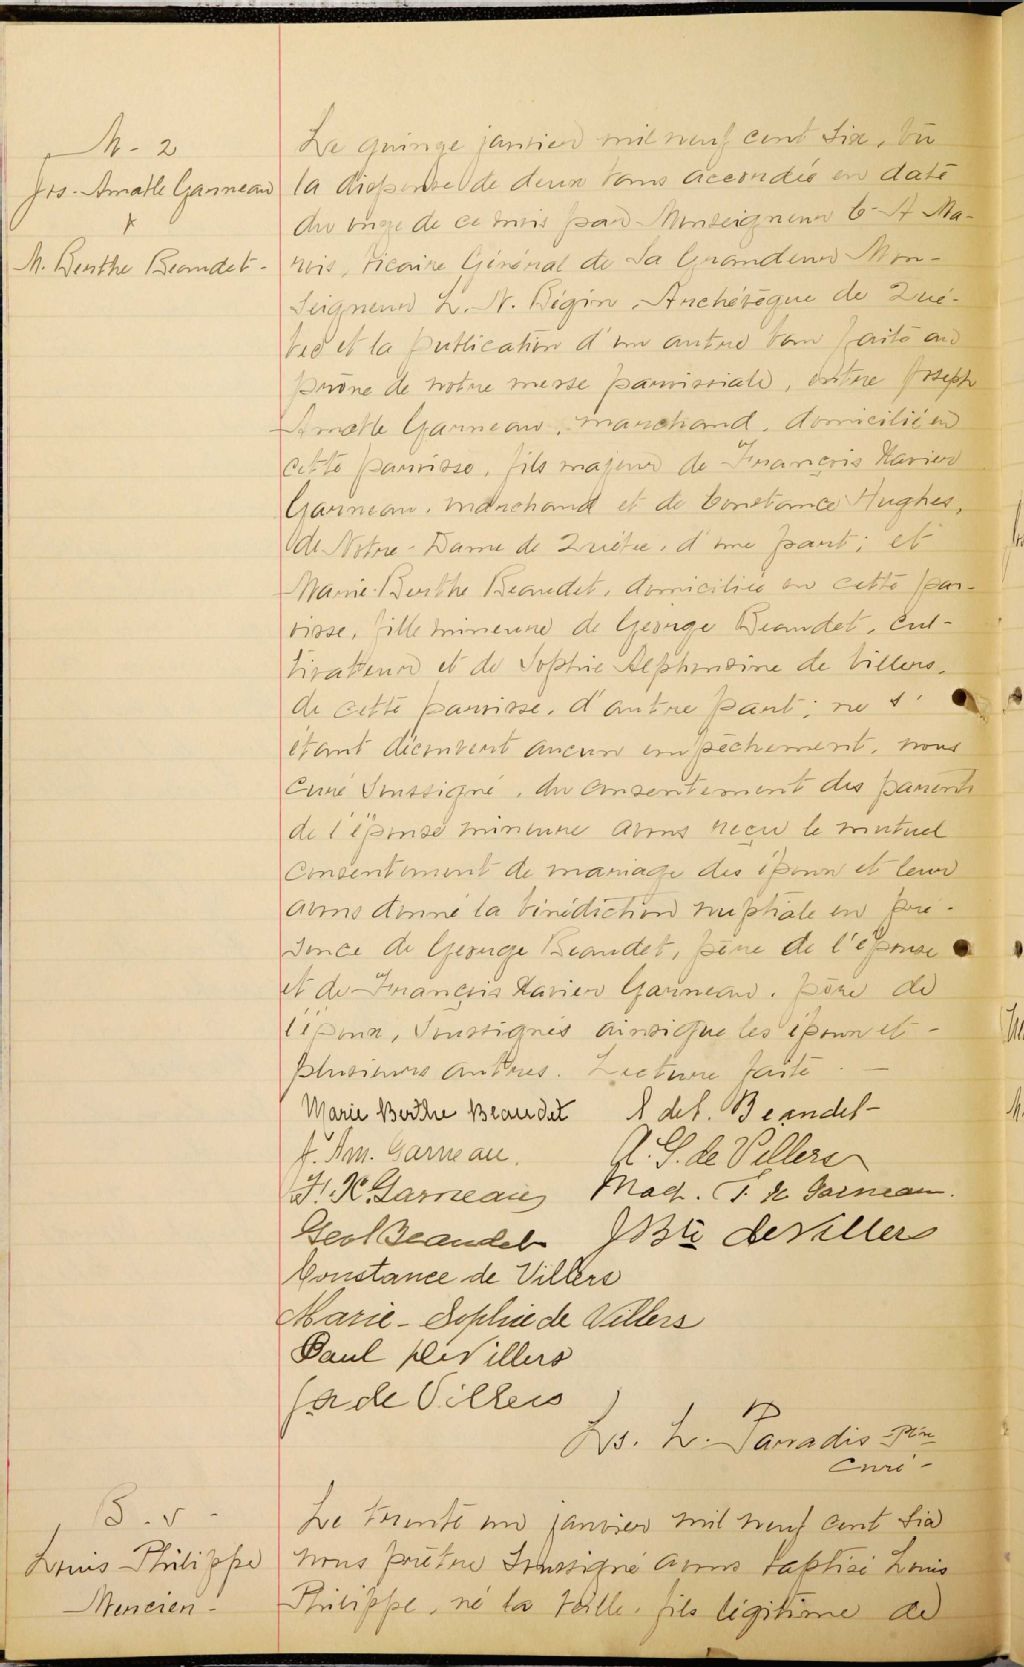 M - 2
Jos. Amable Garneau
&
M. Berthe Beaudet -
Le quinze janvier mil neuf cent six, vu
la dispense de deux bans accordée en date
du onze de ce mois par Monseigneur C. A Ma-
rois, Vicaire Général de Sa Grandeur Mon-
seigneur L. N. Bégin, Archévêque de Qué-
bec et la publication d'un autre ban faite au
prône de notre messe paroissiale, entre Joseph
Amable Garneau, marchand, domicilié en
cette paroisse, fils majeur de François Xavier
Garneau, marchand et de Constance Hughes,
de Notre-Dame de Québec, d'une part; et
Marie-Berthe Beaudet, domiciliée en cette par-
oisse, fille mineure de George Beaudet, cul-
tivateur et de Sophie Alphonsine de Villers,
de cette paroisse, d'autre part; ne s'
étant découvert aucun empêchement, nous
curé soussigné, du consentement des parents
de l'épouse mineure avons reçu le mutuel
consentement de mariage des époux et leur
avons donné la bénédiction nuptiale en pré-
sence de George Beaudet, père de l'épouse
et de François Xavier Garneau, père de
l'époux, soussignés ainsi que les époux et -
plusieurs autres. Lecture faite. -
Marie Berthe Beaudet Beaudet
J. Am. Garneau. A. S. de Villers
F. X. Garneau Mad. F. X Garneau.
Geo Beaudet J Bte de Villers
Constance de Villers
Marie-Sophie de Villers
Paul de Villers
de Villers
Ls. L. Paradis Ptre
curé -
B. 5 -
Louis-Philippe
Mencien -
Le trente un janvier mil neuf cent six
nous prêtre soussigné avons baptisé Louis
Philippe, né la veille, fils légitime de